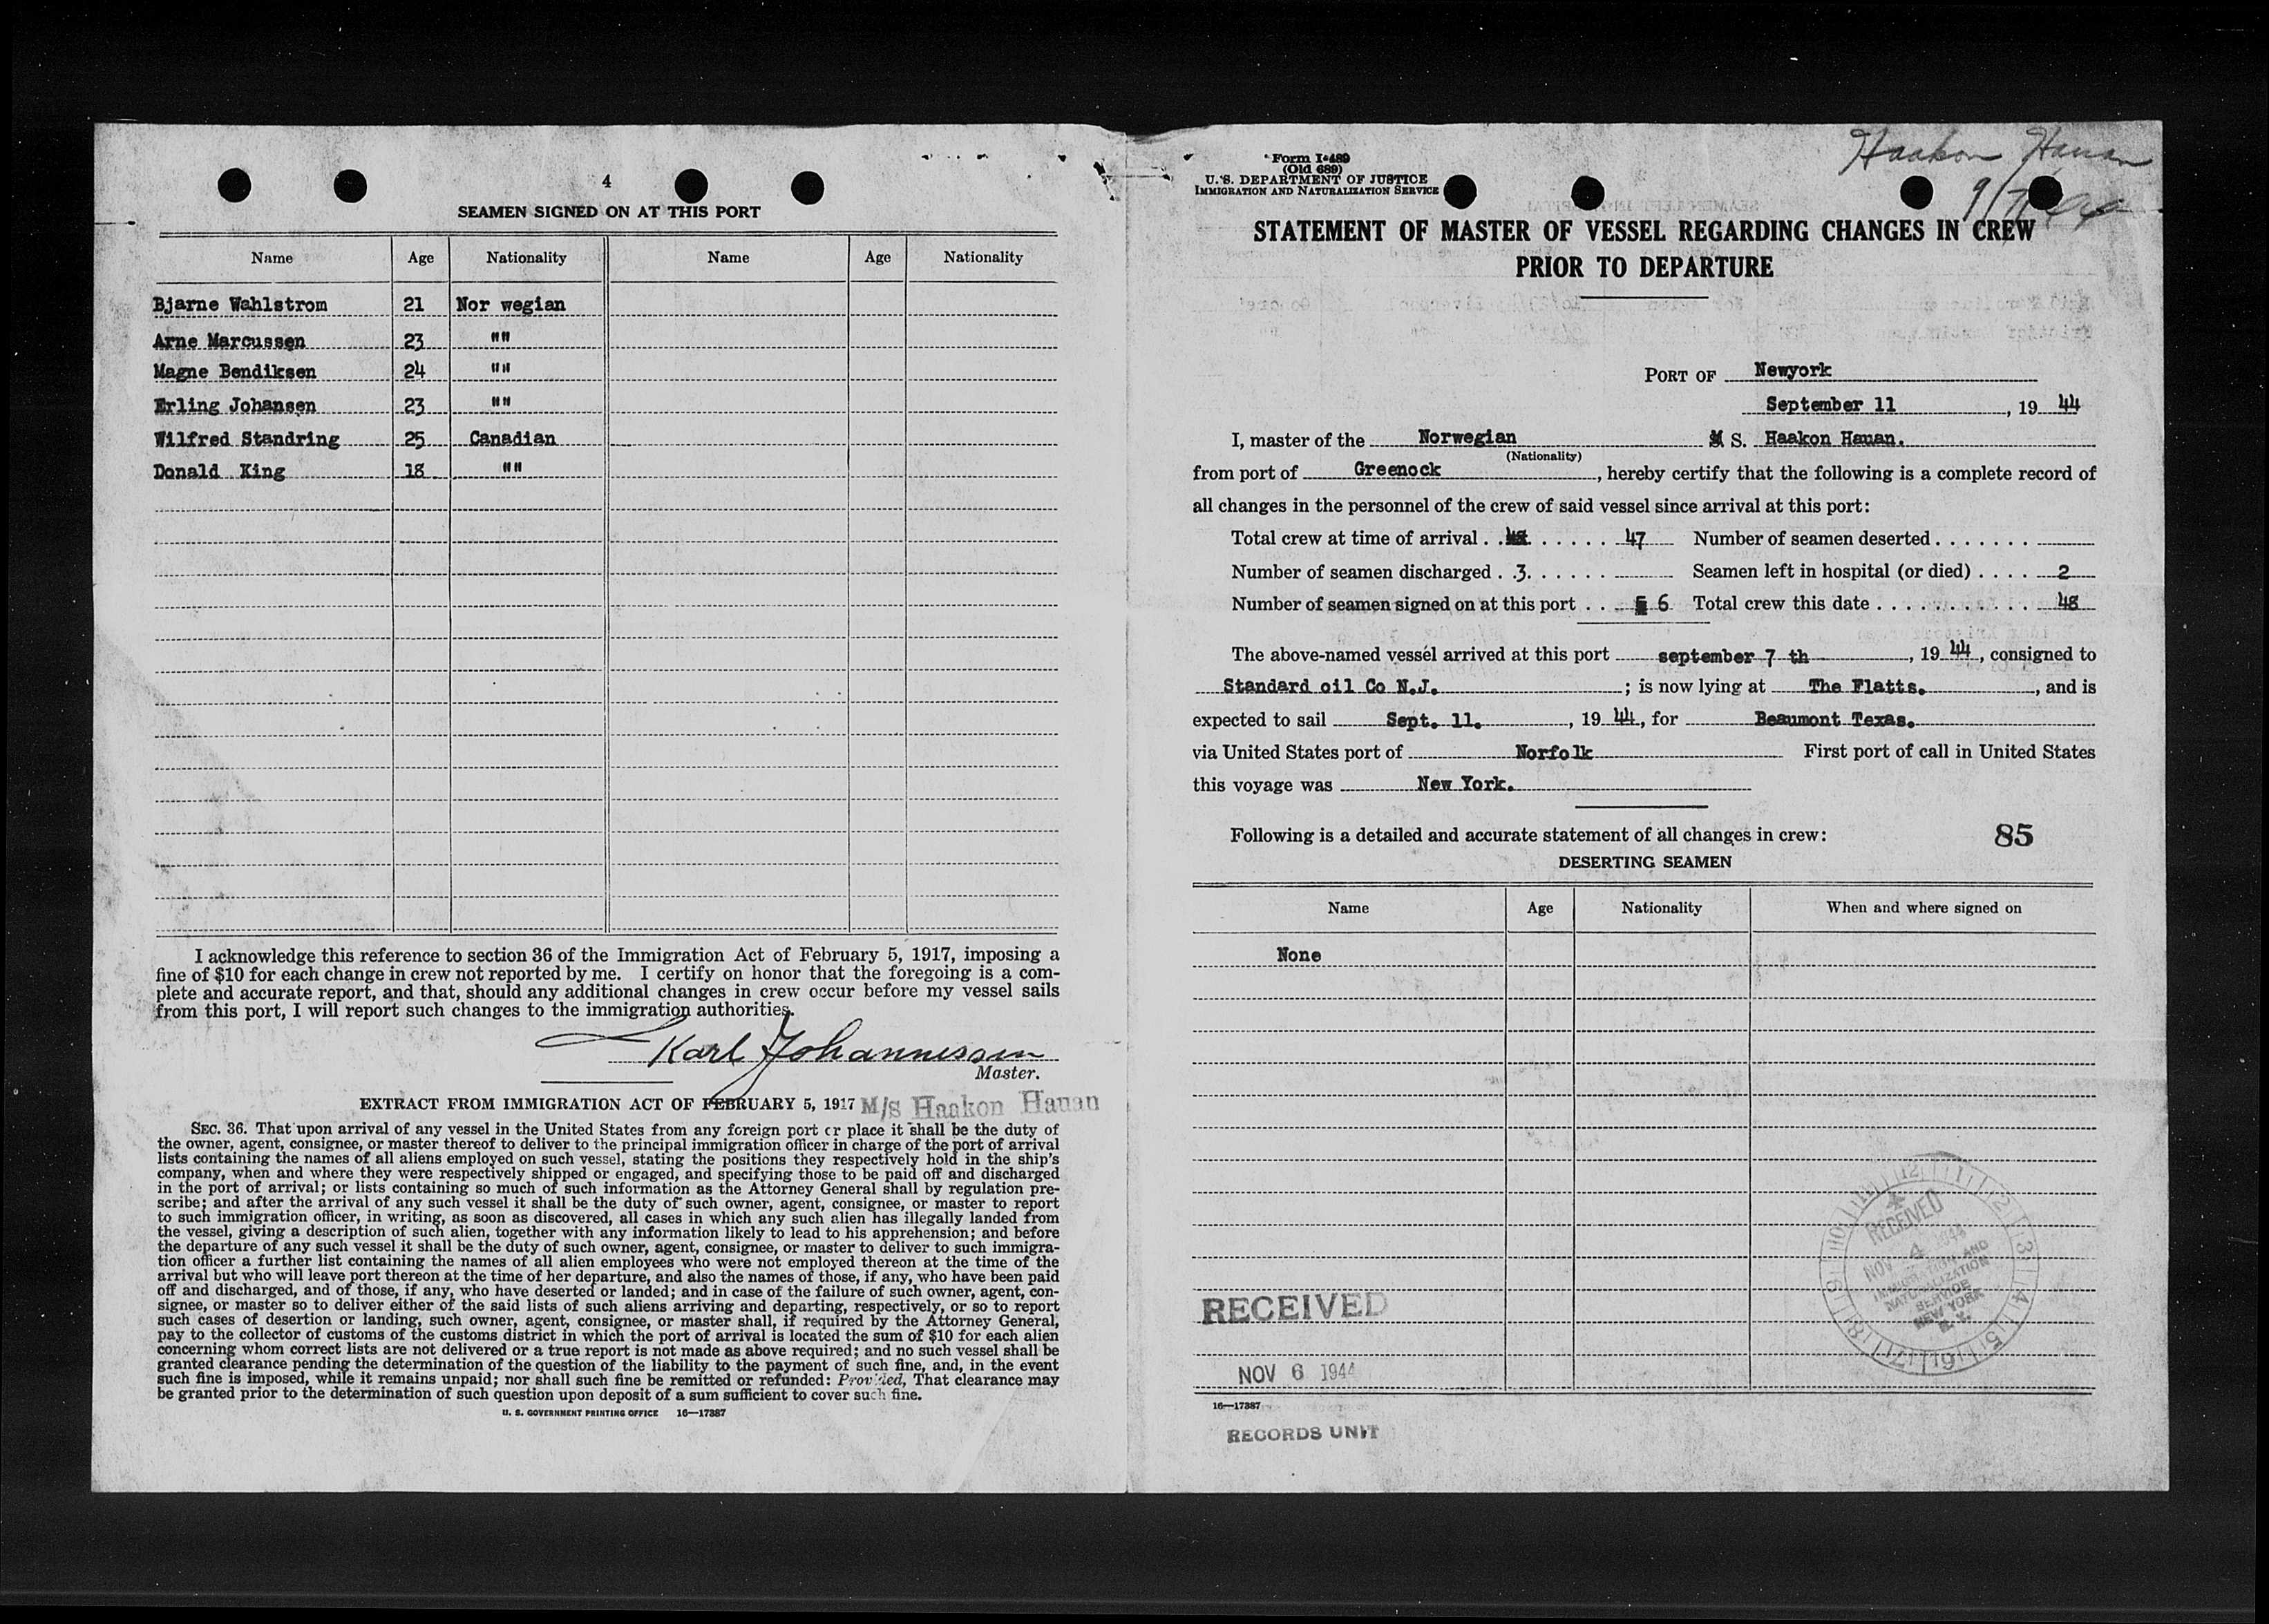 4
SEAMEN SIGNED ON AT THIS PORT
Name Age Nationality Name Age Nationality
Bjarne Wahlstrom 21 Nor wegian
Arne Marcussen 23 ""
Magne Bendiksen 24 ""
Erling Johansen 23 ""
Wilfred Standring 25 Canadian
Donald King 18 ""
I acknowledge this reference to section 36 of the Immigration Act of February 5, 1917, imposing a
fine of $10 for each change in crew not reported by me. I certify on honor that the foregoing is a com-
plete and accurate report, and that, should any additional changes in crew occur before my vessel sails
from this port, I will report such changes to the immigration authorities.
Karl Johannessen
Master.
EXTRACT FROM IMMIGRATION ACT OF FEBRUARY 5, 1917 M/S Haakon Hauan
SEC. 36. That upon arrival of any vessel in the United States from any foreign port or place it shall be the duty of
the owner, agent, consignee, or master thereof to deliver to the principal immigration officer in charge of the port of arrival
lists containing the names of all aliens employed on such vessel, stating the positions they respectively hold in the ship's
company, when and where they were respectively shipped or engaged, and specifying those to be paid off and discharged
in the port of arrival; or lists containing so much of such information as the Attorney General shall by regulation pre-
scribe; and after the arrival of any such vessel it shall be the duty of such owner, agent, consignee, or master to report
to such immigration officer, in writing, as soon as discovered, all cases in which any such alien has illegally landed from
the vessel, giving a description of such alien, together with any information likely to lead to his apprehension; and before
the departure of any such vessel it shall be the duty of such owner, agent, consignee, or master to deliver to such immigra-
tion officer a further list containing the names of all alien employees who were not employed thereon at the time of the
arrival but who will leave port thereon at the time of her departure, and also the names of those, if any, who have been paid
off and discharged, and of those, if any, who have deserted or landed; and in case of the failure of such owner, agent, con-
signee, or master so to deliver either of the said lists of such aliens arriving and departing, respectively, or so to report
such cases of desertion or landing, such owner, agent, consignee, or master shall, if required by the Attorney General,
pay to the collector of customs of the customs district in which the port of arrival is located the sum of $10 for each alien
concerning whom correct lists are not delivered or a true report is not made as above required; and no such vessel shall be
granted clearance pending the determination of the question of the liability to the payment of such fine, and, in the event
such fine is imposed, while it remains unpaid; nor shall such fine be remitted or refunded: Provided, That clearance may
be granted prior to the determination of such question upon deposit of a sum sufficient to cover such fine.
U. S. GOVERNMENT PRINTING OFFICE 16—17387
Haakon Hauan
9/7/44
Form I-489
(Old 689)
U. S. DEPARTMENT OF JUSTICE
IMMIGRATION AND NATURALIZATION SERVICE
STATEMENT OF MASTER OF VESSEL REGARDING CHANGES IN CREW
PRIOR TO DEPARTURE
PORT OF Newyork
September 11, 19 44
I, master of the Norwegian M S. Haakon Hauan.
(Nationality)
from port of Greenock, hereby certify that the following is a complete record of
all changes in the personnel of the crew of said vessel since arrival at this port:
Total crew at time of arrival . . . . . . . 47 Number of seamen deserted . . . . . . .
Number of seamen discharged . .3. . . . . . Seamen left in hospital (or died) . . . . 2
Number of seamen signed on at this port . . . 6 Total crew this date . . . . . . . . . . . 48
The above-named vessel arrived at this port september 7 th, 19 44, consigned to
Standard oil Co N.J. ; is now lying at The Flatts., and is
expected to sail Sept. 11., 19 44, for Beaumont Texas.
via United States port of Norfolk First port of call in United States
this voyage was New York.
Following is a detailed and accurate statement of all changes in crew: 85
DESERTING SEAMEN
Name Age Nationality When and where signed on
None
RECEIVED
NOV 4 1944
IMMIGRATION AND
NATURALIZATION
SERVICE
NEW YORK
N. Y.
RECEIVED
NOV 6 1944
16—17387
RECORDS UNIT